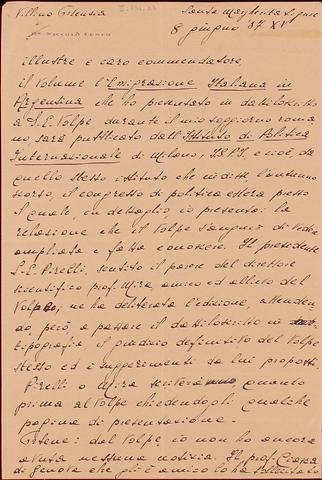 Villino Gilensia
Santa Margherita Ligure
8 giugno 37 XV
illustre e caro commendatore
il volume l'Emigrazione Italiana in
Argentina che ho presentato in dattiloscritto
a S.E. Volpe durante il mio soggiorno roma
no, sarà pubblicato dall'Istituto di Politica
Internazionale di Milano, ISPI, e cioè, da
quello stesso istituto che indisse l'autunno
scorso, il congresso di politica estera presso
il quale, in dettaglio, io presentai la
relazione che il Volpe s'augurò di vedere
ampliata e fatta conoscere. Il presidente
S.E. Pirelli, sentito il parere del direttore
scientifico prof. Mira, amico ed allievo del
Volpe, ne ha deliberata l'edizione, attenden
do però a passare il dattiloscritto in
tipografia, il giudizio definitivo del Volpe
stesso ed i suggerimenti da lui proposti.
Pirelli o Mira scriveranno quanto
prima al Volpe chiedendogli qualche
pagina di presentazione.
dal Volpe, io non ho ancora
avuta nessuna notizia. Il prof.
di Genova che gli è amico lo ha sollecitato